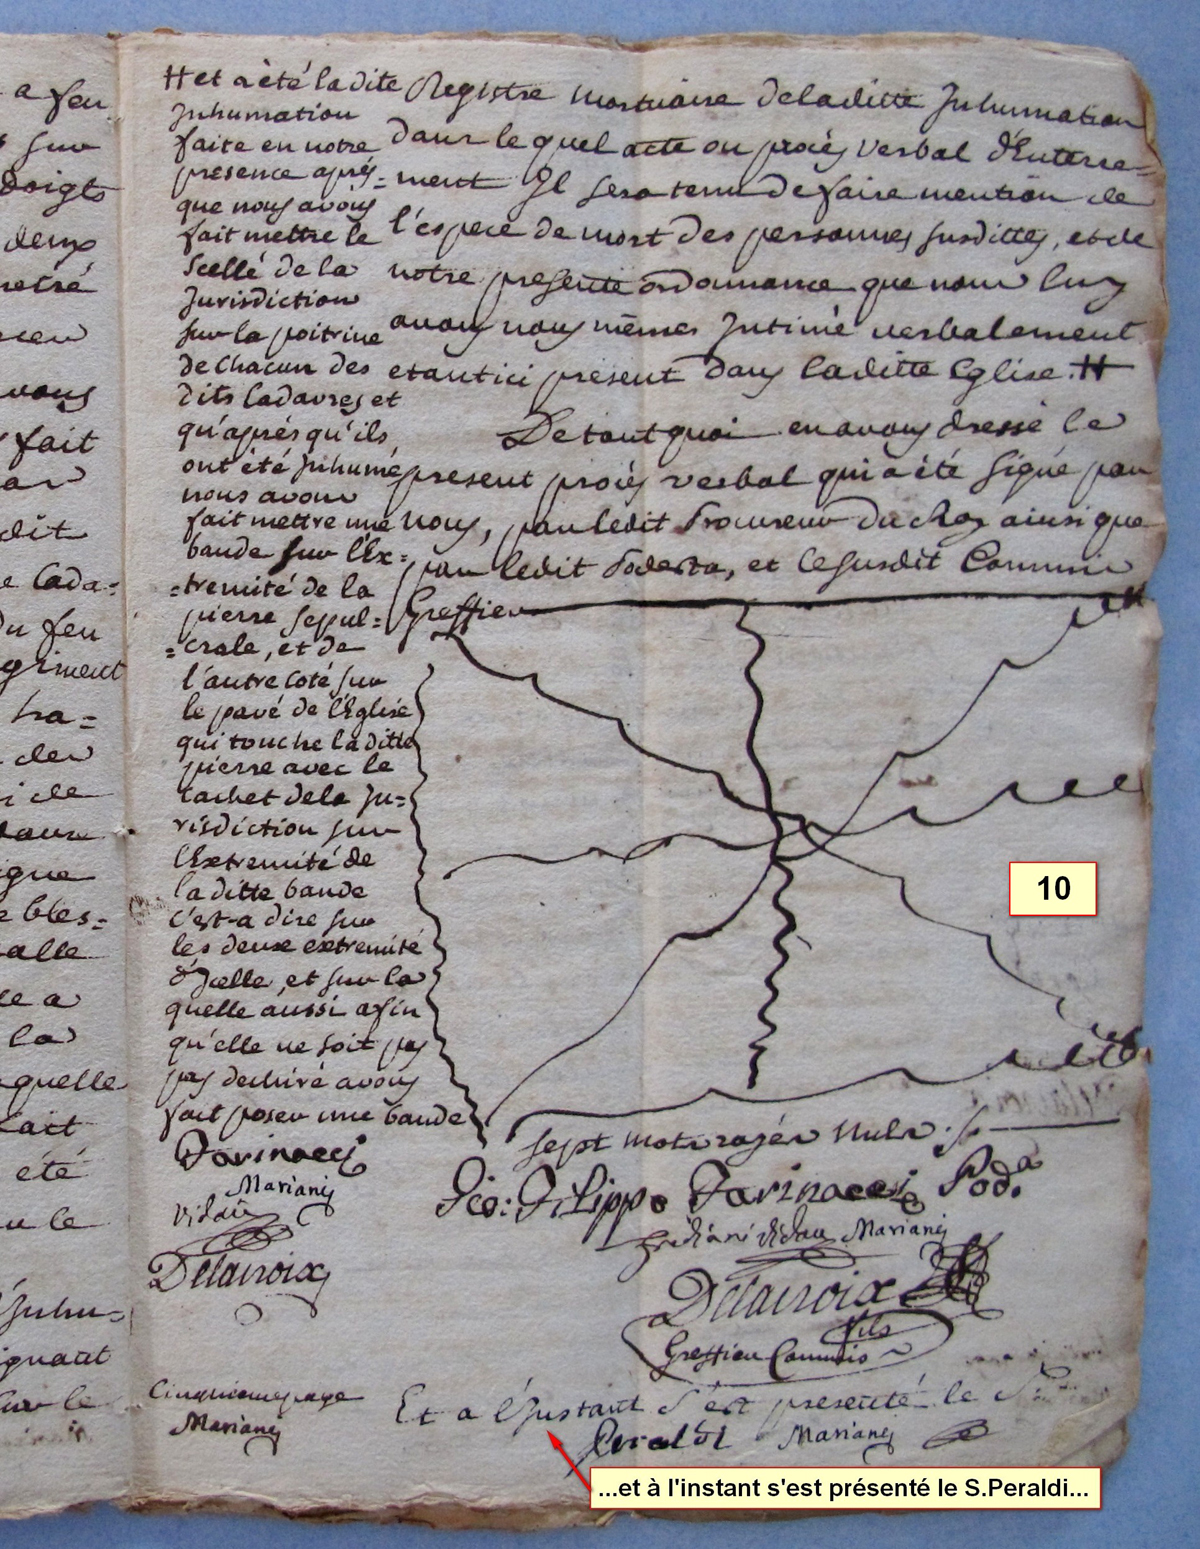 a feu
sur
doigts
deux
vous
fait
dit
e Cada=
Du feu
giment
ha=
i de
igue
e bles=
alle
la
quelle
fait
été
u le
Juhu=
ignant
sur le
Registre mortuaire deladitte Inhumation
dans le quel acte ou procés verbal d'Enterre=
ment Il sera tenu de faire mention de
l'espece de mort des personnes susdittes, et de
notre presente ordonnance que nous luy
avons nous mêmes Intimé verbalement
etant ici present dans laditte Eglise. #
De tout quoi en avons dressé le
present procés verbal qui a été signé par
nous, par ledit Procureur du Roy ainsi que
par ledit Podesta, et le susdit Commis
Greffier
# et a été la dite
Inhumation
faite en notre
presence aprés=
que nous avons
fait mettre le
Scellé de la
Jurisdiction
sur la poitrine
de chacun des
dits Cadavres et
qu'aprés qu'ils
ont été Inhumé
nous avons
fait mettre une
bande sur l'Ex=
=tremité de la
pierre sepul=
=crale, et de
l'autre coté sur
le pavé de l'Eglise
qui touche laditte
pierre avec le
cachet dela Ju=
risdiction sur
l'Extremité de
la ditte bande
c'est-a dire sur
les deux extremité
d'Jcelle, et sur la
quelle aussi afin
qu'elle ne soit pas
pas dechiré avons
fait poser une bande
Farinacci
Mariani
Vidau
Delacroix
sept mots rayés nuls
Gio: Filippo Farinacci Poda
Frediani Vidau Mariani
Delacroix
fils
Greffier Commis
Cinquieme page
Mariani
Et a l'Jnstant s'est presenté le Sr
Peraldi Mariani
10
...et à l'instant s'est présenté le S.Peraldi...